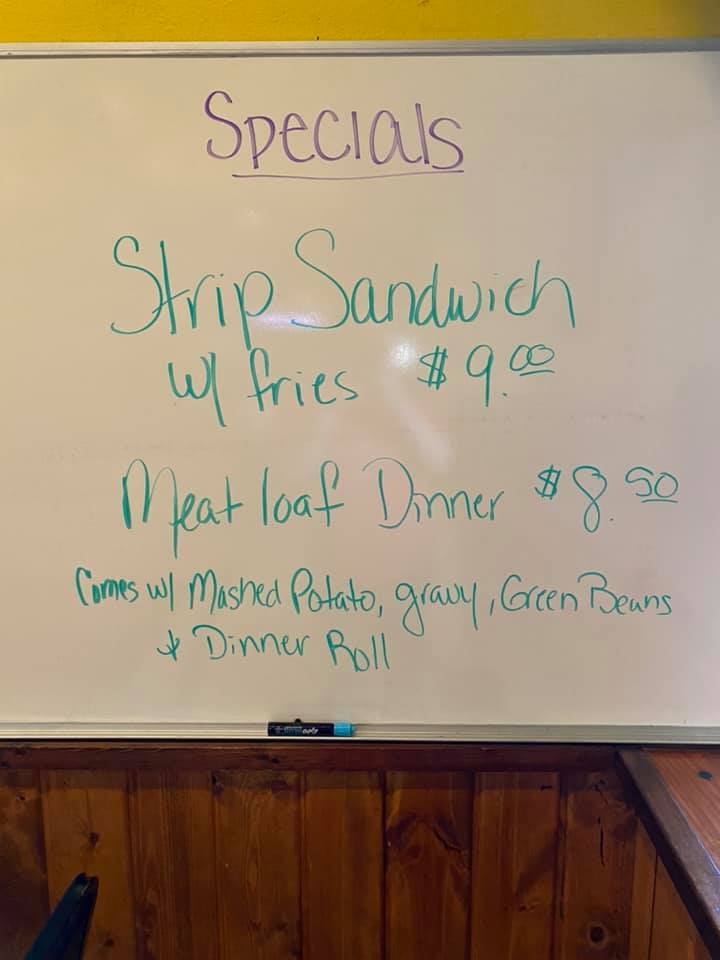 Specials
Strip Sandwich
w/ fries $9.00
Meat loaf Dinner $8.50
Comes w/ Mashed Potato, gravy, Green Beans
& Dinner Roll